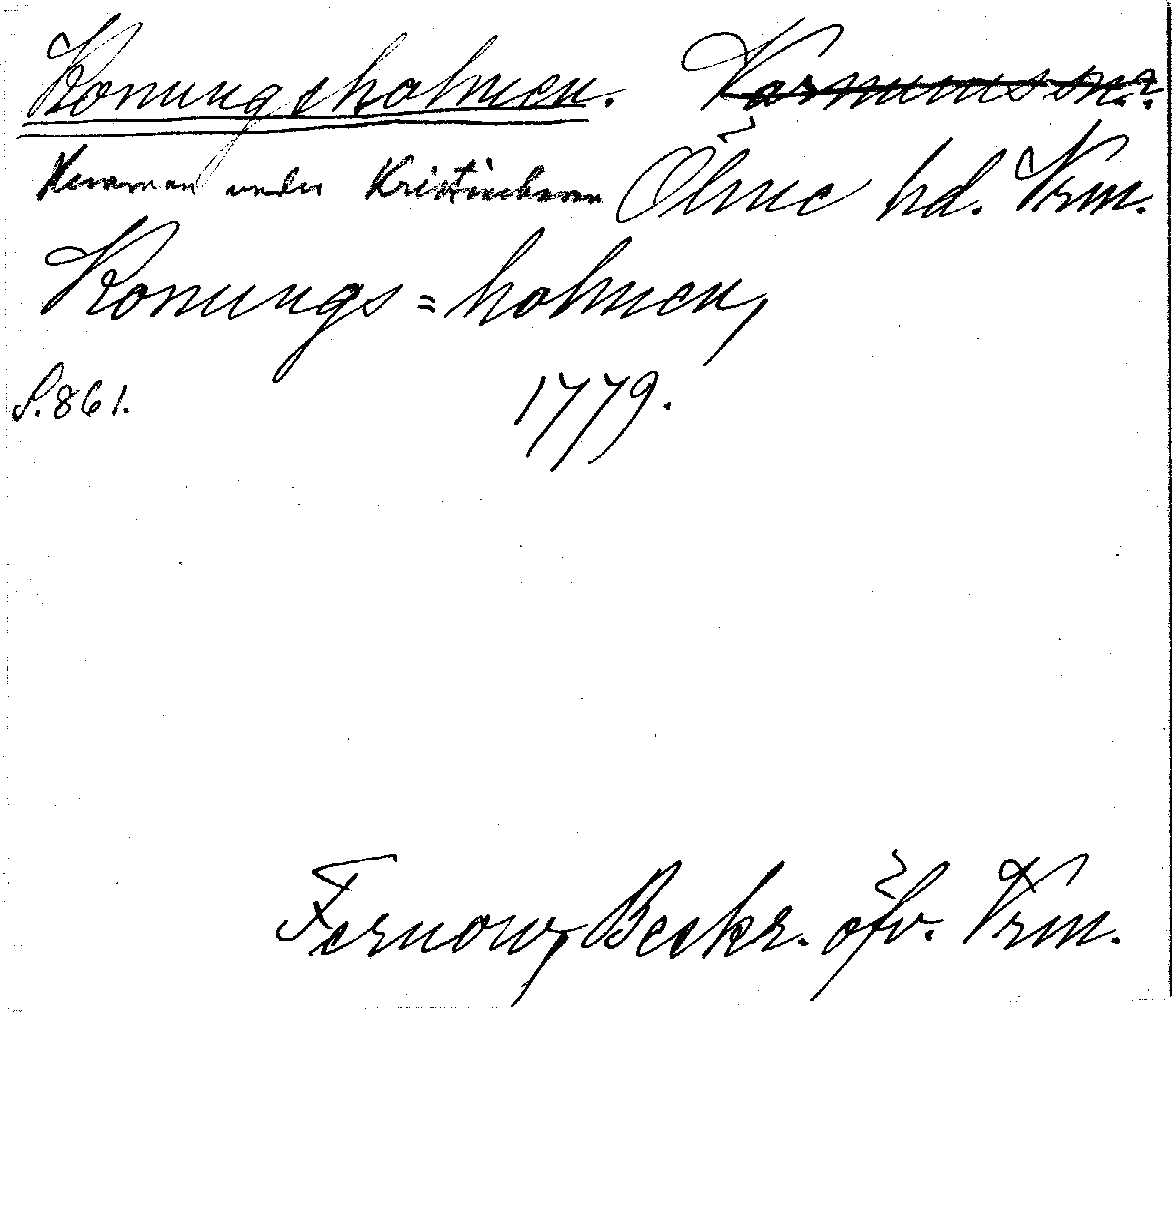 Konungsholmen. Varnums sn.?
under Kristinehamn Ölme hd. Vrm.
Konungs=holmen,
S. 861. 1779.
Fernow, Beskr. öfv. Vrm.